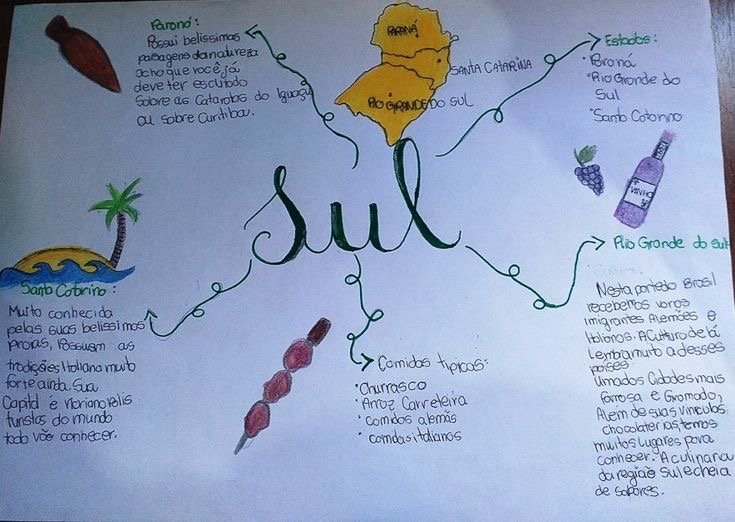 Paraná:
Possui belíssimas
paisagens da natureza
acho que você já
deve ter escutado
sobre as Cataratas do Iguaçu
ou sobre Curitiba.
PARANÁ
SANTA CATARINA
RIO GRANDE DO SUL
Estados:
Paraná
Rio Grande do
Sul
Santa Catarina
VINHO
Sul
Santa Catarina:
Muito conhecida
pelas suas belíssimas
praias, Possuem as
tradições Italiana muito
forte ainda. Sua
Capital é Florianópolis
turistas do mundo
todo vão conhecer.
Comidas típicas:
Churrasco
Arroz Carreteiro
comidas alemãs
comidas italianas
Rio Grande do sul
Cultura:
Nesta parte do Brasil
recebemos varos
imigrantes Alemães e
Italianos. A Cultura de lá
Lembra muito a desses
países
Uma das Cidades mais
famosa e Gramado,
Além de suas vinculos
chocolaterias, temos
muitos lugares para
conhecer. A culinaria
da região Sul e cheia
de sabores.